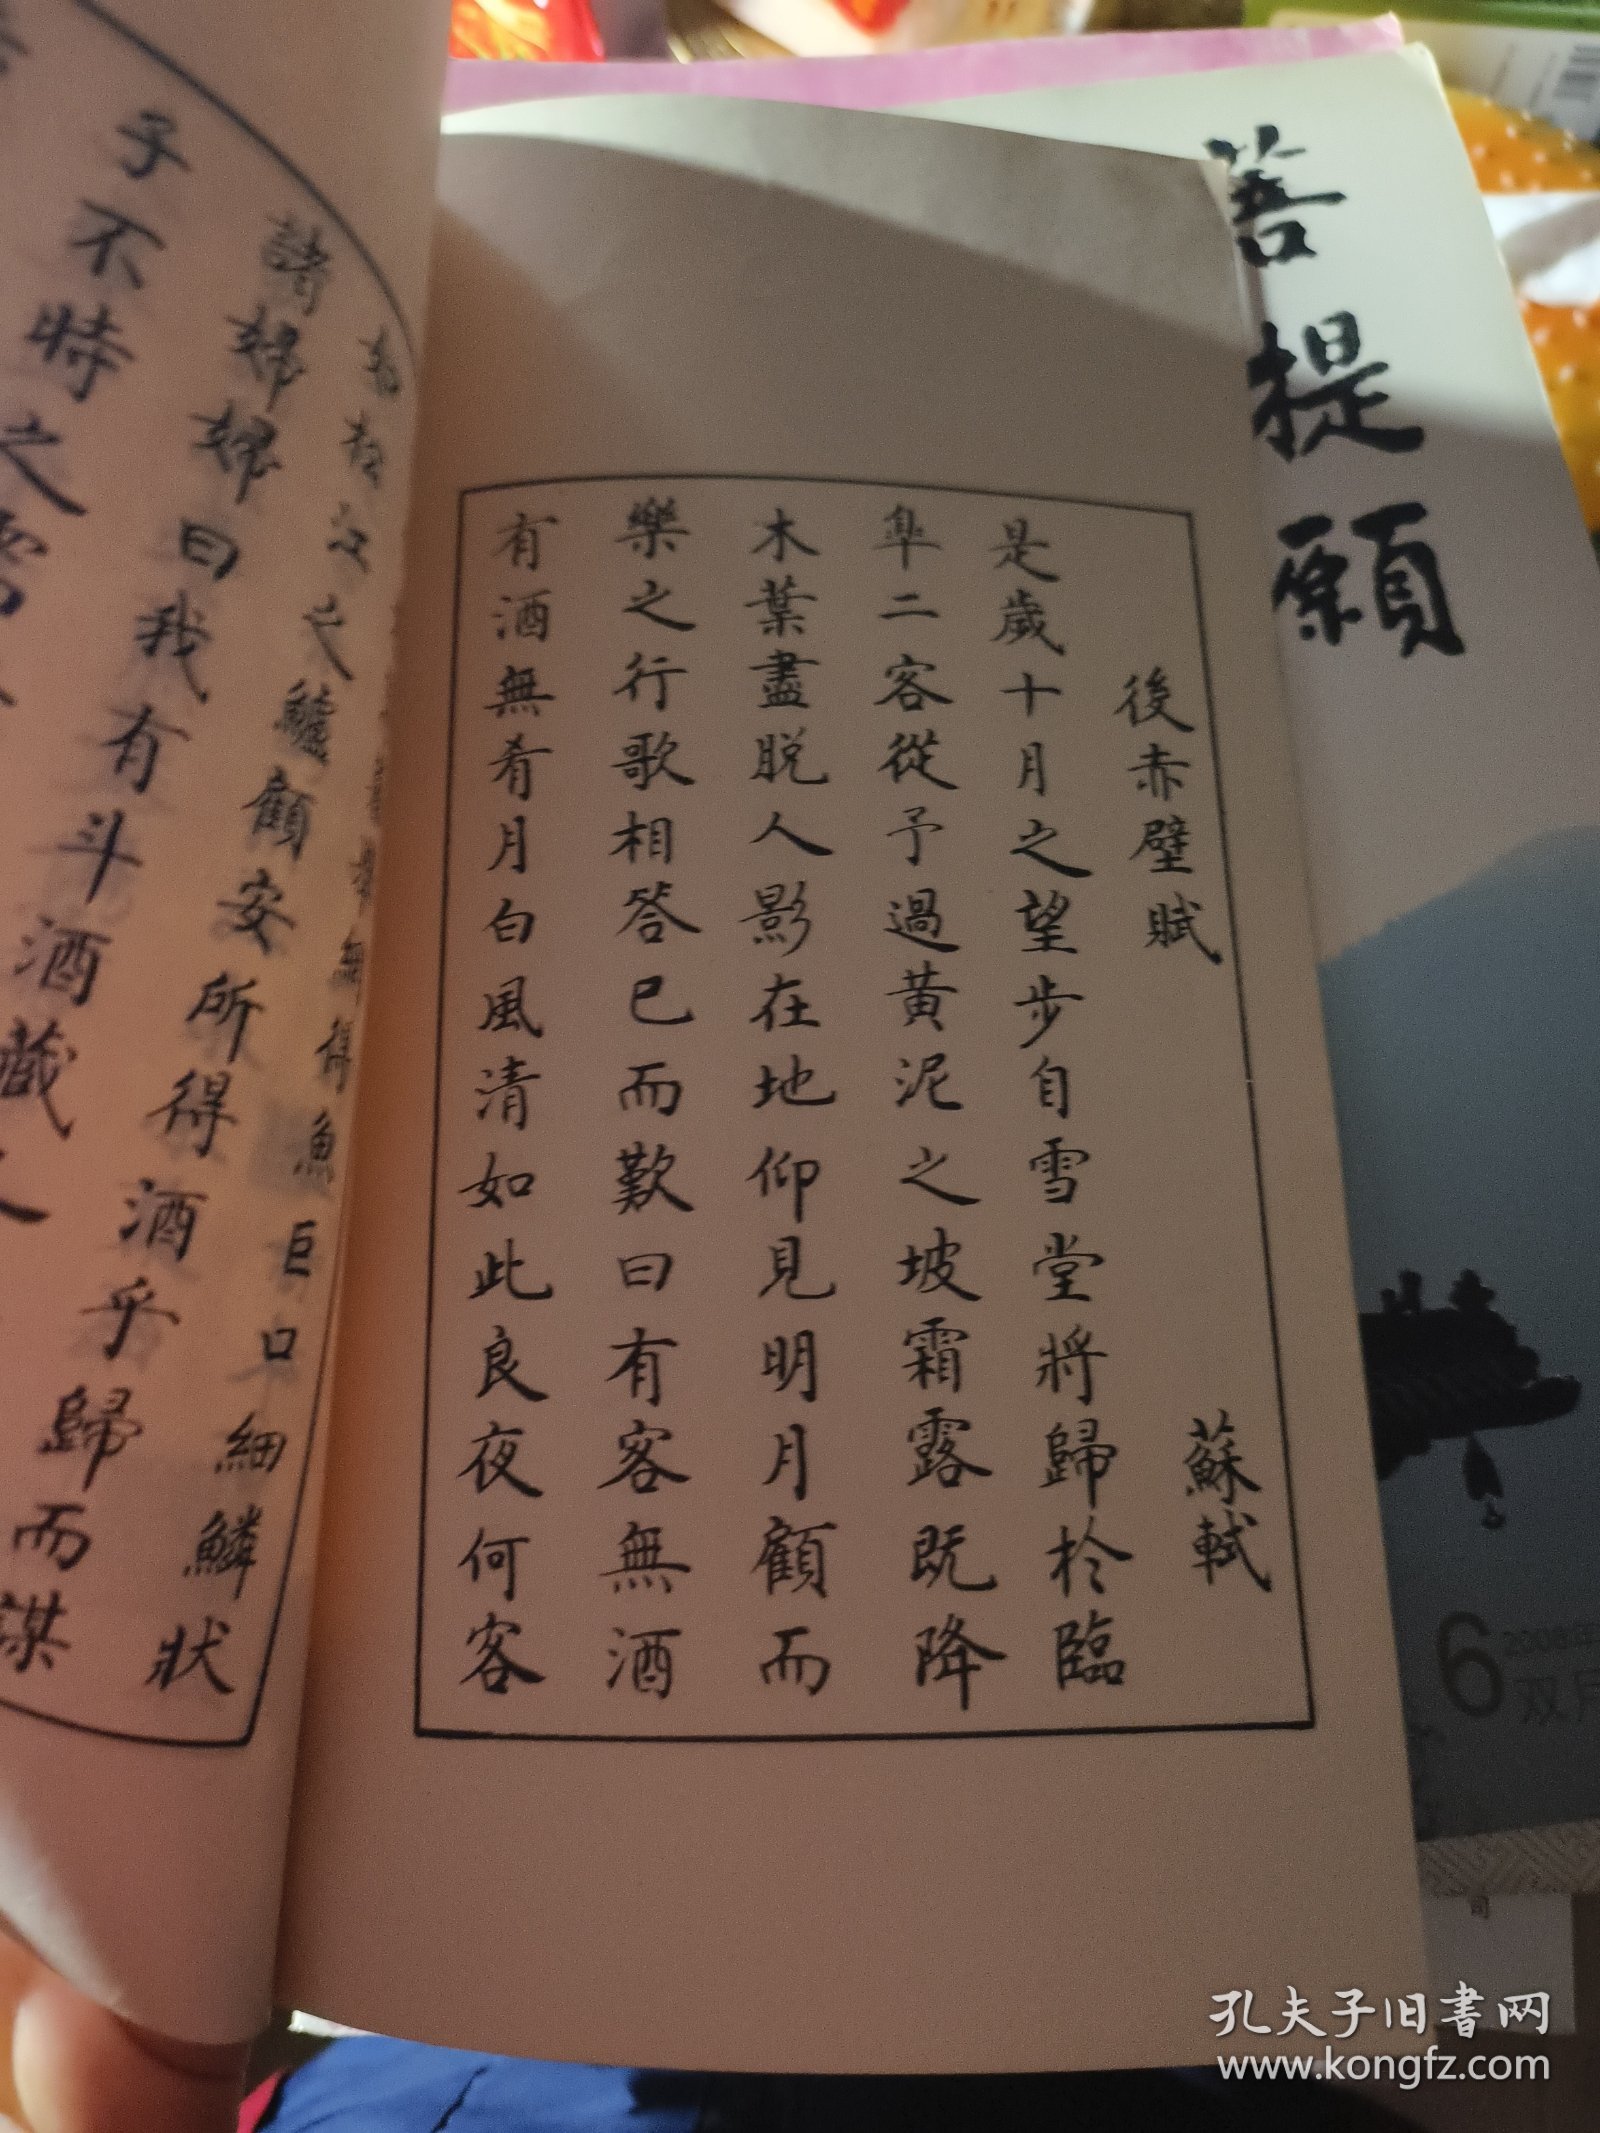 後赤壁賦 蘇軾
是歲十月之望步自雪堂將歸於臨
皐二客從予過黃泥之坡霜露既降
木葉盡脱人影在地仰見明月顧而
樂之行歌相答已而歎曰有客無酒
有酒無肴月白風清如此良夜何客
之鱸顧安所得酒乎歸而謀
諸婦婦曰我有斗酒藏之
子不時之需
得魚巨口細鱗狀
菩提願
6
2008年
双月
孔夫子旧書网
www.kongfz.com